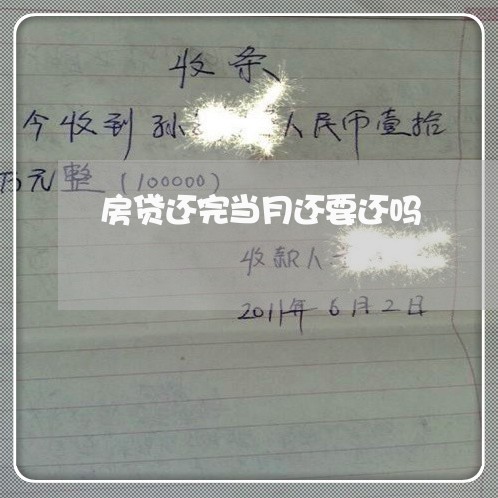 收条
今收到孙 人民币壹拾
万元整（100000）
房贷还完当月还要还吗
收款人
2011年6月2日